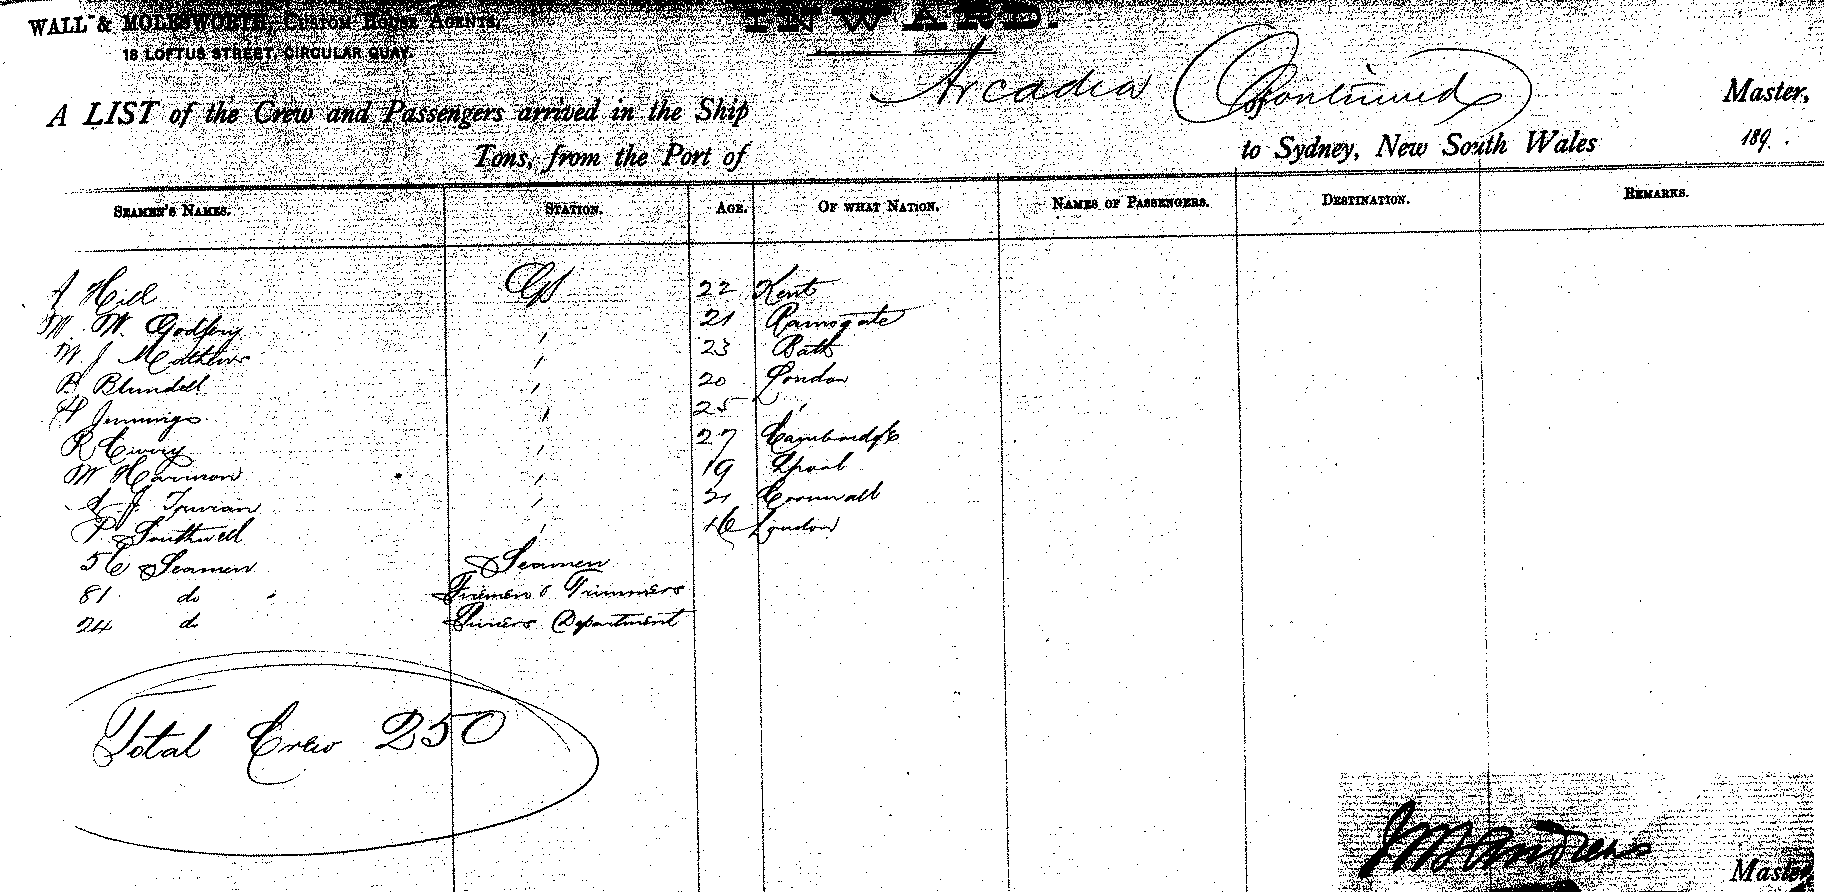 WALL & MOLESWORTH, Custom House Agents,
18 LOFTUS STREET, CIRCULAR QUAY.
INWARD.
A LIST of the Crew and Passengers arrived in the Ship Arcadia (Continued) Master,
Tons, from the Port of to Sydney, New South Wales 189 .
Seamen's Names. Station. Age. Of what Nation. Names of Passengers. Destination. Remarks.
Hill 22 Kent
M. W. Godfrey " 21 Ramsgate
W J Mathews " 23 Bath
B Blundell " 20 London
H Jennings " 25 "
R Curry " 27 Cambridge
W Harrison " 19 Lpool
A J Truvian " 21 Cornwall
P Southwell " 16 London
56 Seamen Seamen
81 do Firemen & Trimmers
24 do Pursers Department
Total Crew 250
Andrews Master,